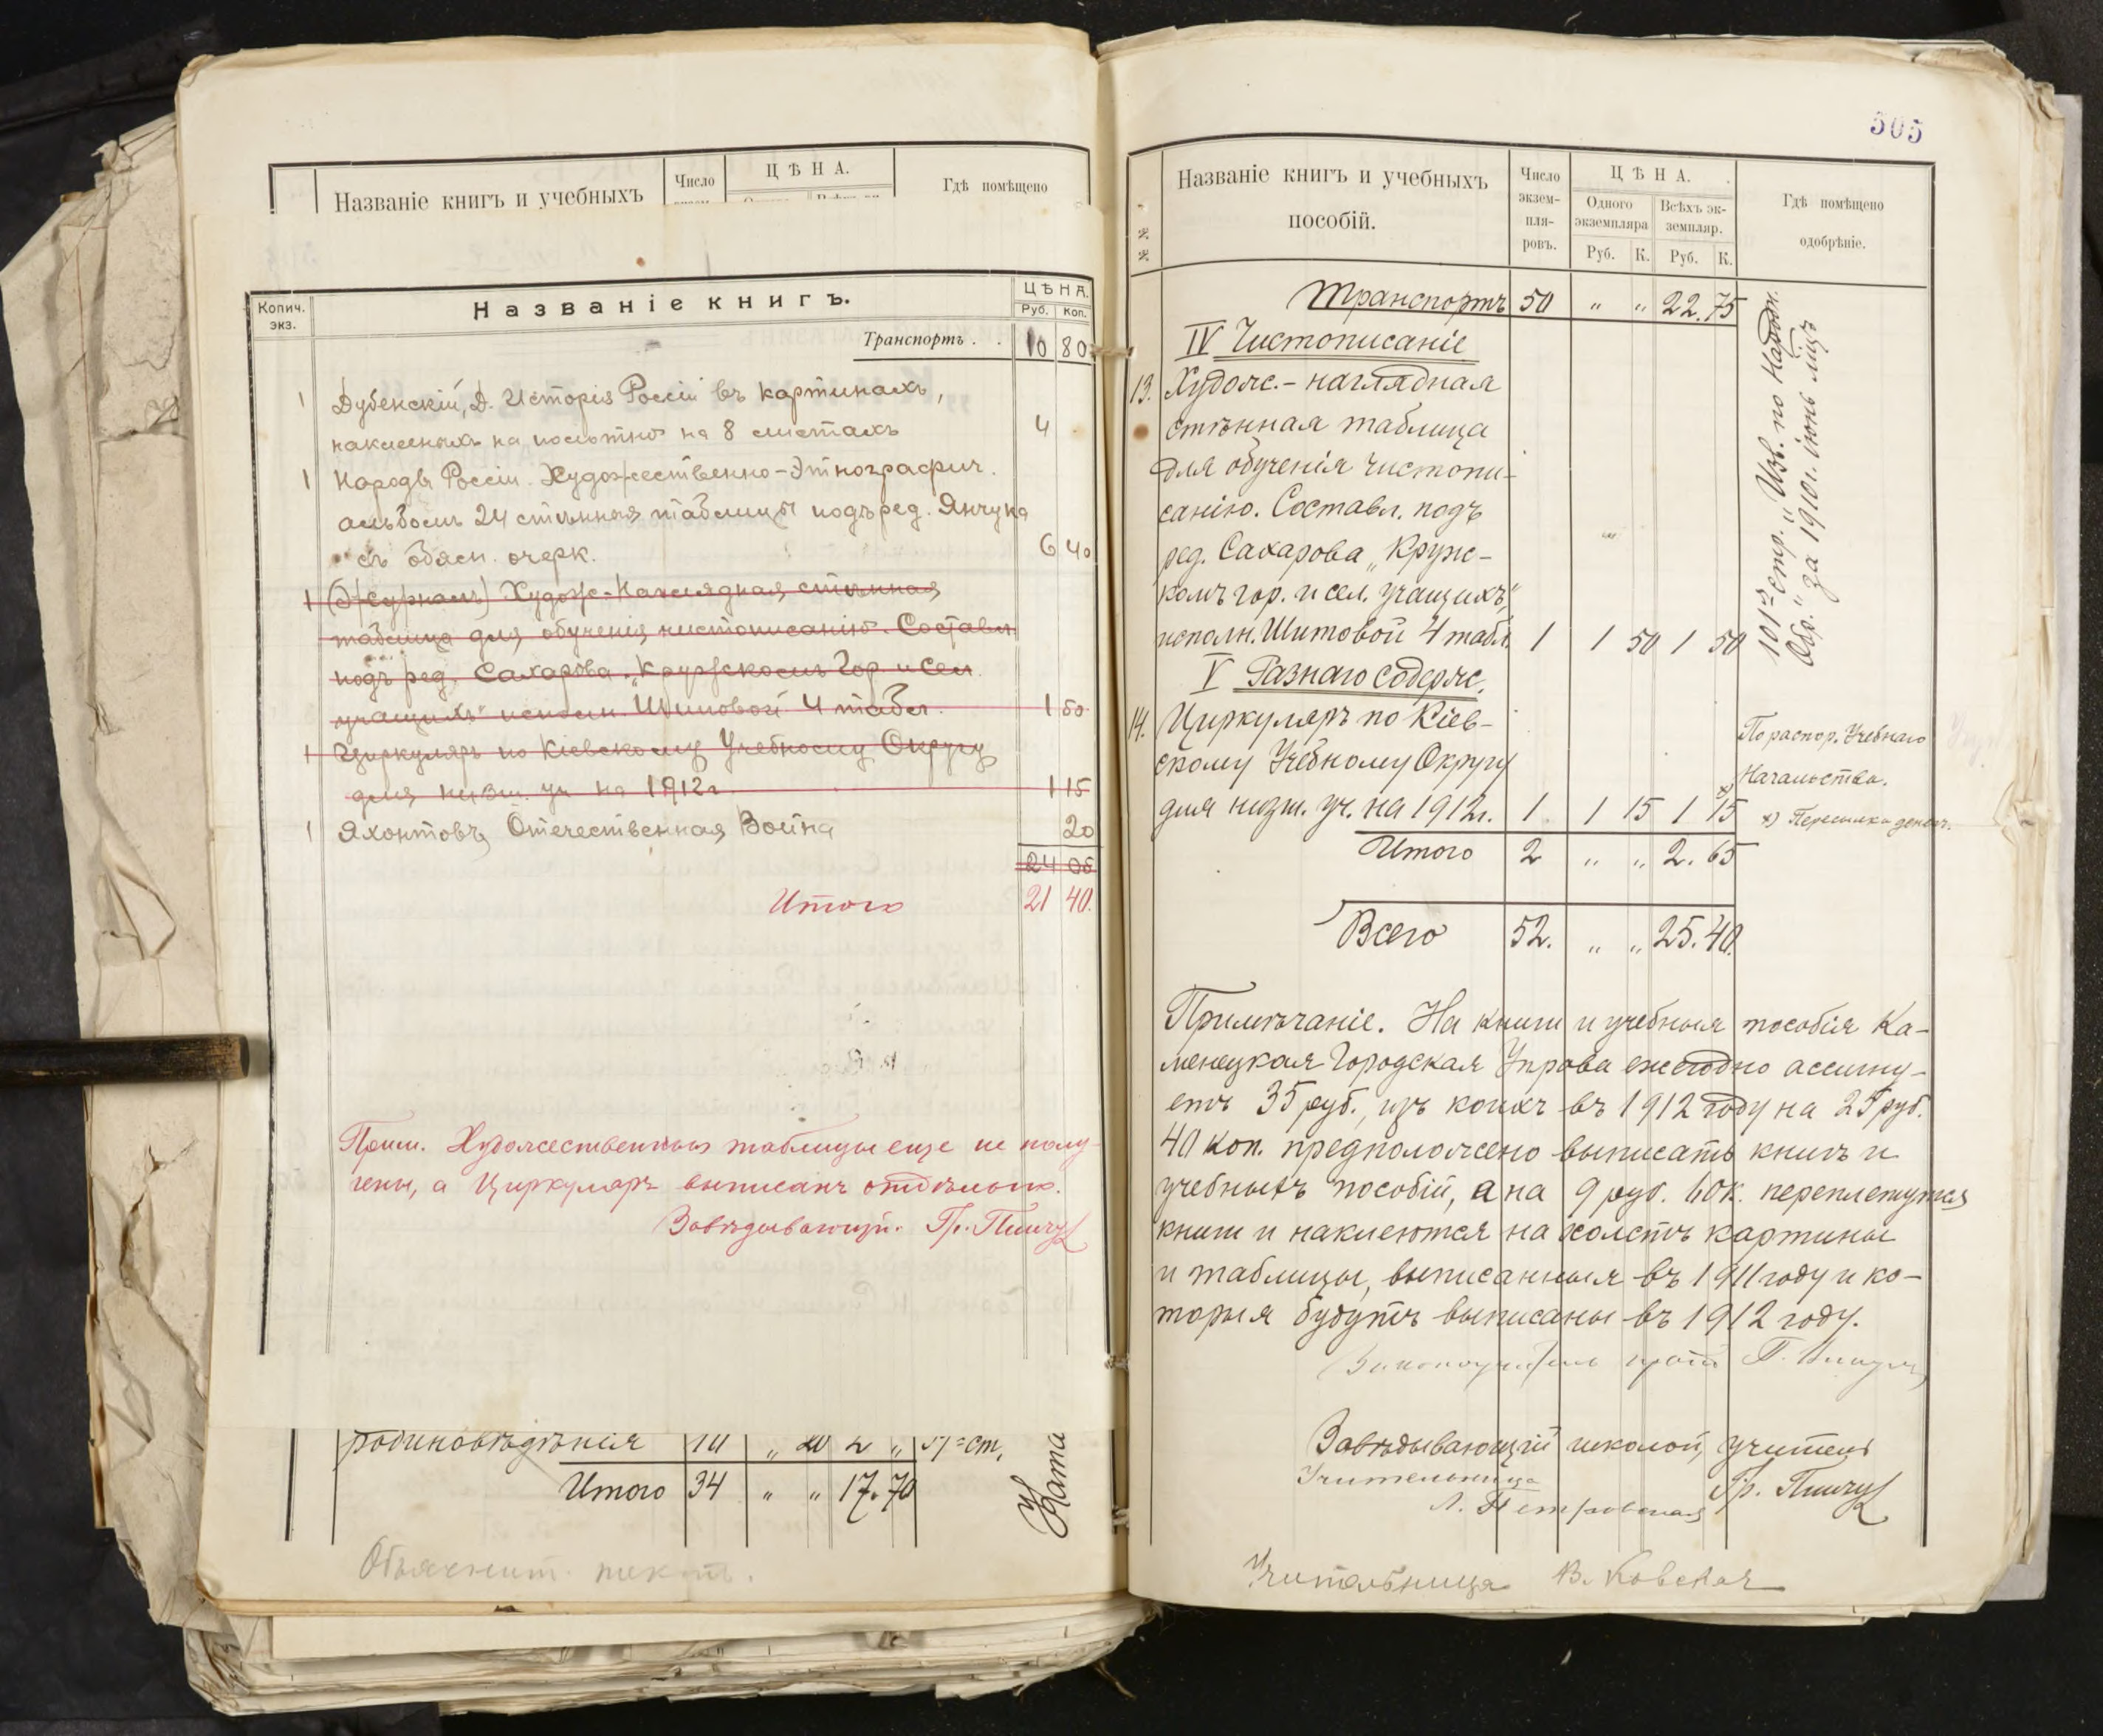 Названіе книгъ и учебныхъ
Число
ЦѢНА.
Гдѣ помѣщено
Копич. экз.
Названіе книгъ.
ЦѢНА.
Руб. Коп.
Транспортъ . . 10 80
1 Дубенскій, Д. Исторія Россіи въ картинахъ,
наклееныхъ на полотно на 8 листахъ 4
1 Народы Россіи. Художественно-Этнографич.
альбомъ 24 стѣнныя таблицы подъ ред. Янчука
съ объясн. очерк. 6 40
1 (Журналъ) Худож-Наглядная стѣнная
таблица для обученія чистописанію. Составл
подъ ред. Сахарова „Кружкомъ Гор. и Сел.
учащихъ" исполн. Шитовой 4 табл. 1 50
1 Циркуляръ по Кіевскому Учебному Округу
для низш. уч на 1912 г. 1 15
1 Яхонтовъ, Отечественная Война 20
24 05
Итого 21 40.
Прим. Художественныя таблицы еще не полу-
чены, а Циркуляръ выписанъ отдѣльно.
Завѣдывающій. Гр. Пинчу
родиновѣдѣнія 10 „ 20 2 „ ст.
Итого 34 „ „ 17. 70
Объяснит. текст.
505
№ №
Названіе книгъ и учебныхъ
пособій.
Число
экзем-
пля-
ровъ.
ЦѢНА.
Одного
экземпляра
Всѣхъ эк-
земпляр.
Руб. К. Руб. К.
Гдѣ помѣщено
одобрѣніе.
Транспортъ 50 „ „ 22. 75
IV Чистописаніе
13. Худож.-наглядная
стѣнная таблица
для обученія чистопи-
санію. Составл. подъ
ред. Сахарова „Круж-
комъ гор. и сел. учащихъ",
исполн. Шитовой 4 табл. 1 1 50 1 50
101я стр. „Изв. по Народн.
Обр." за 1910 г. іюнь мѣц
V Разнаго содерж.
14. Циркуляръ по Кіев-
скому Учебному Округу
для низш. уч. на 1912 г. 1 1 15 1 15
По распор. Учебнаго
Начальства.
x) Пересылка денегъ.
Итого 2 „ „ 2. 65
Всего 52. „ „ 25. 40.
Примѣчаніе. На книги и учебныя пособія Ка-
менецкая Городская Управа ежегодно ассигну-
етъ 35 руб., изъ коихъ въ 1912 году на 25 руб.
40 коп. предположено выписать книгъ и
учебныхъ пособій, а на 9 руб. 60 к. переплетутся
книги и наклеются на холстъ картины
и таблицы, выписанныя въ 1911 году и ко-
торыя будутъ выписаны въ 1912 году.
Законоучитель
Завѣдывающій школой, учитель
Гр. Пинчу
Учительница
Л. Петровская
Учительница В. Ковская